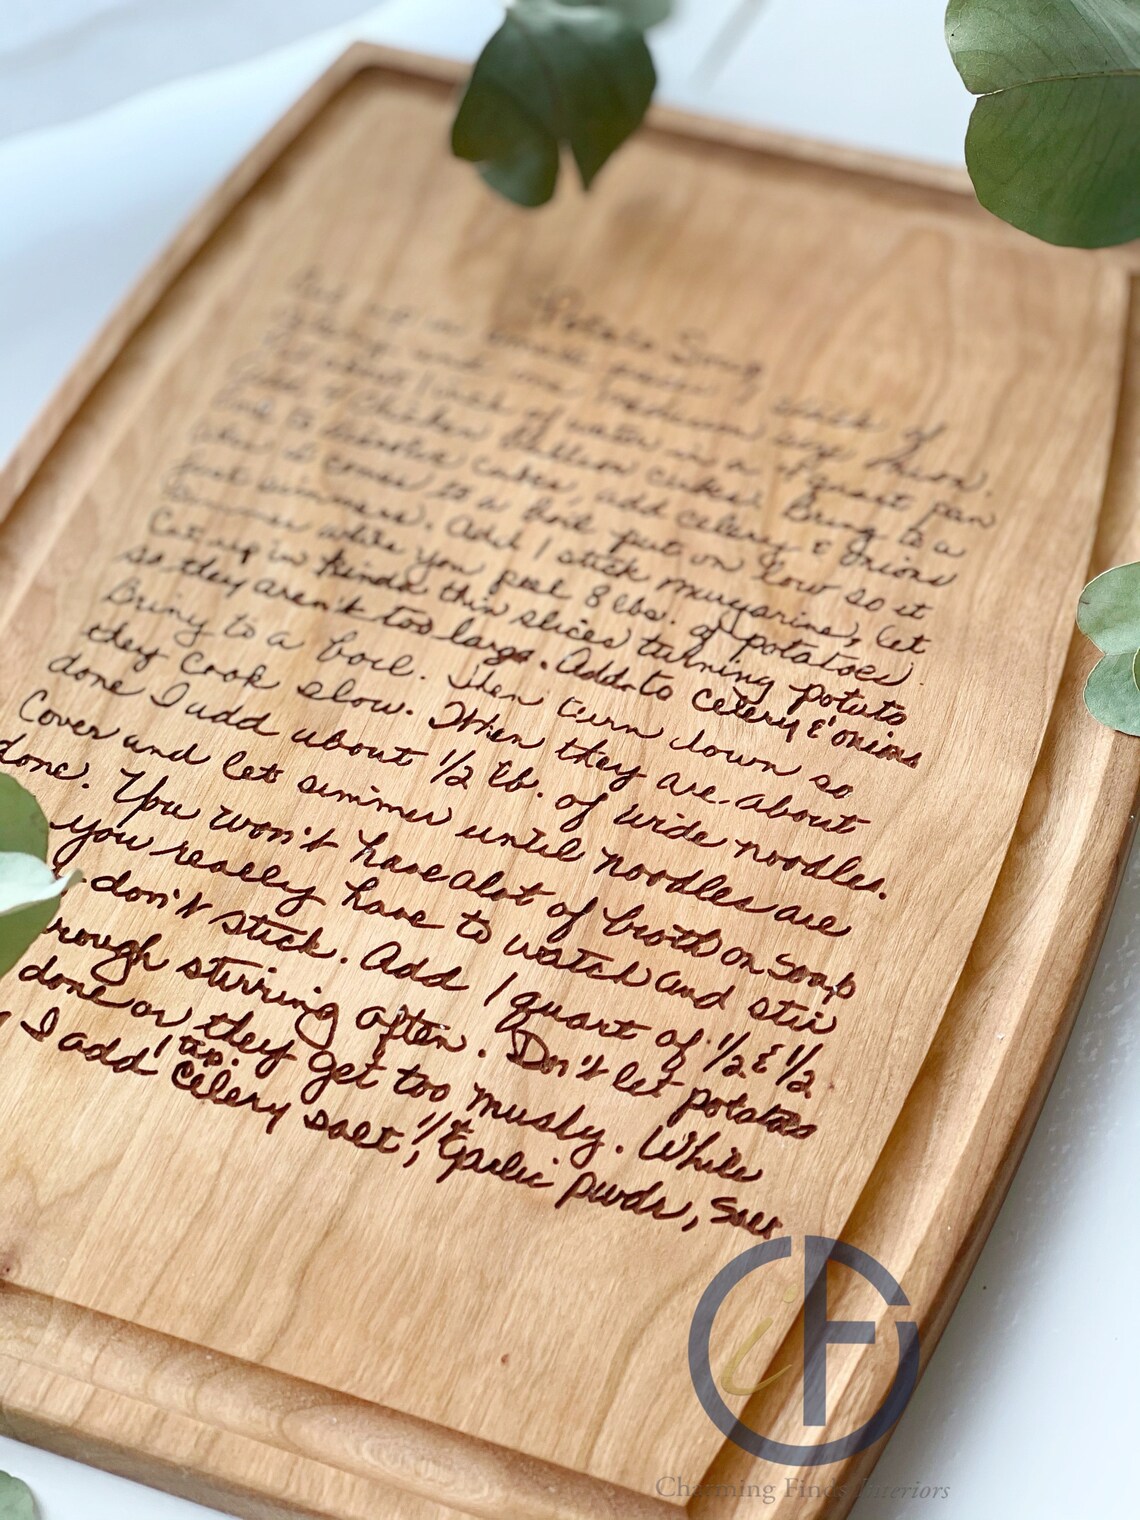 Potato Soup
Cut up in small pieces 1 stick of
celery and one medium size onion.
Put about 1 inch of water in a 4 quart pan
Add 8 chicken bullion cubes. Bring to a
boil to dissolve cubes, add celery & onions
When it comes to a boil put on low so it
just simmers. Add 1 stick margarine, let
simmer while you peel 8 lbs. of potatoes.
Cut up in kinda thin slices turning potato
so they aren't too large. Add to celery & onions
Bring to a boil. Then turn down so
they cook slow. When they are about
done I add about 1/2 lb. of wide noodles.
Cover and let simmer until noodles are
done. You won't have alot of broth on soap
you really have to watch and stir
don't stick. Add 1 quart of 1/2 & 1/2
rough stirring often. Don't let potatoes
done or they get too mushy. While
I add 1 tsp. celery salt, 1/4 Garlic pwdr,
CiF
Charming Finds Interiors